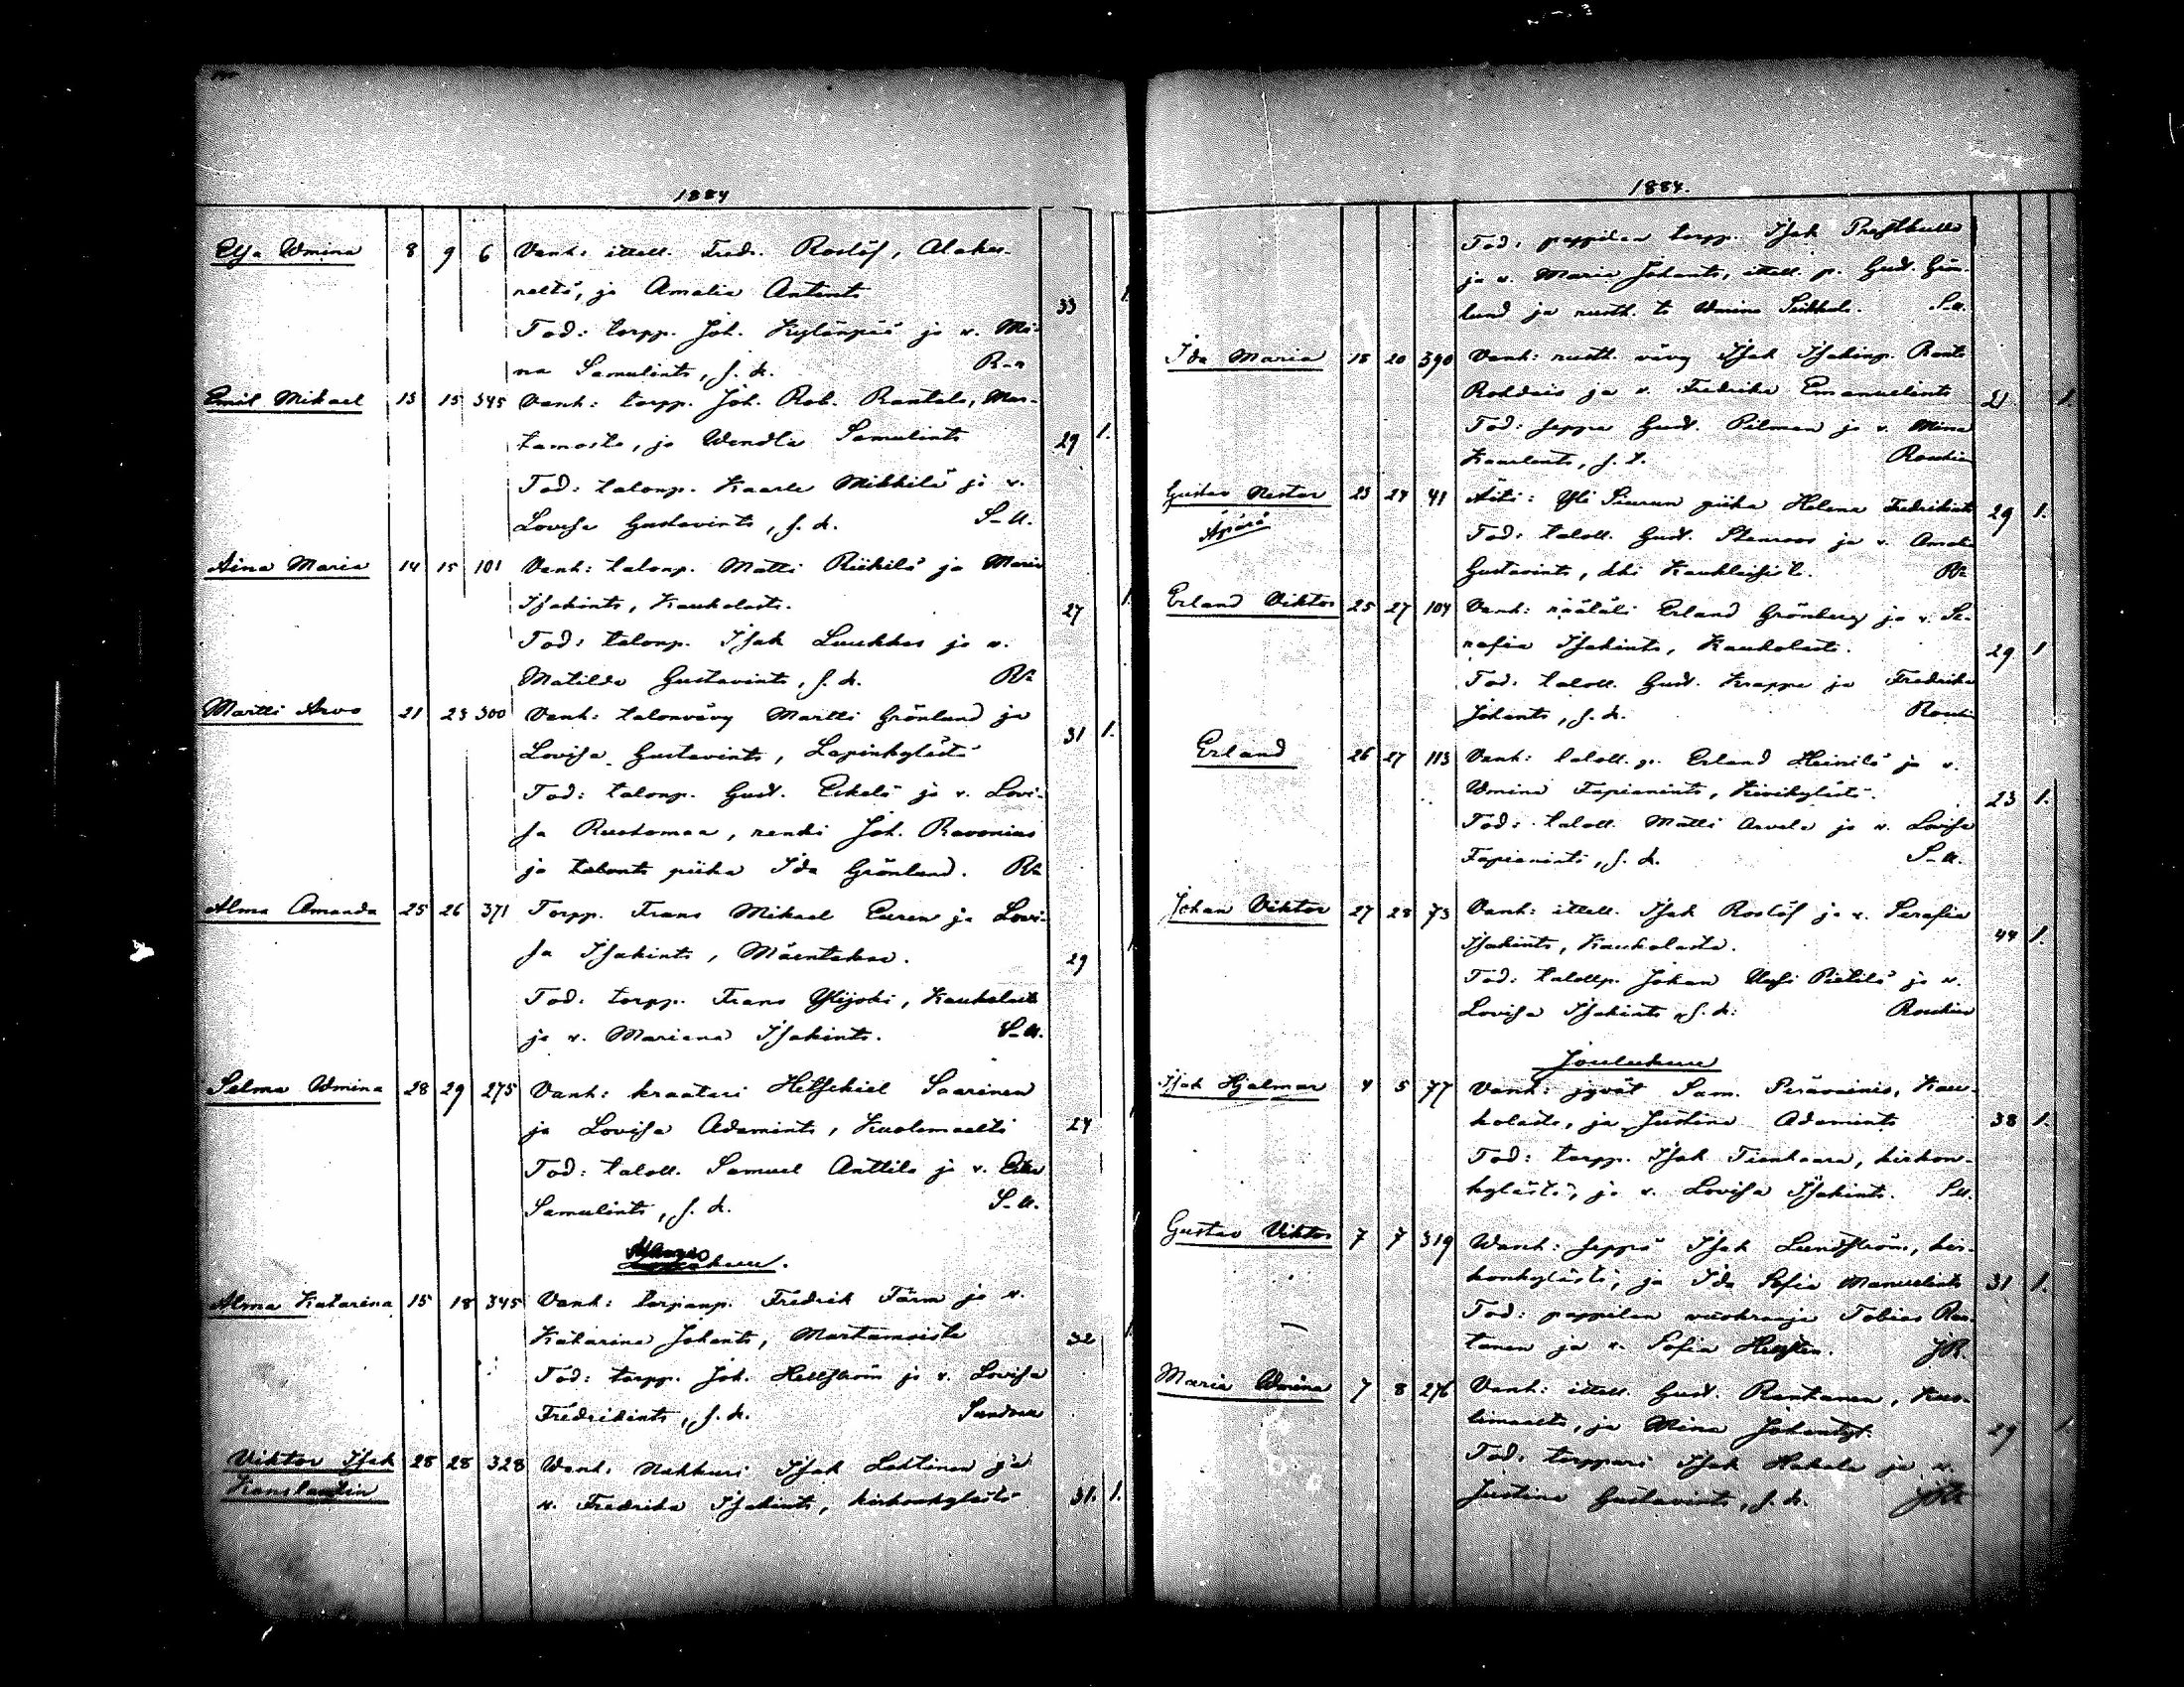 1884
Elsa Wmina 8 9 6 Vanh: itsell. Fred. Roslöf, Alaku-
neltä, ja Amalia Antints 33 1.
Tod: torpp. Joh. Kylänpää ja v. Mi-
na Samulints, s. k. R-n
Emil Mikael 13 15 345 Vanh: torpp. Joh. Rob. Rantala, Mar-
tamosta, ja Wendla Samulints 29 1.
Tod: talonp. Kaarle Mikkilä ja v.
Lovisa Gustavints, s. k. S-u.
Aina Maria 14 15 101 Vanh: talonp. Matti Riihilä ja Maria
Isakints, Kaukolasta. 27 1.
Tod: talonp. Isak Luukkas ja v.
Matilda Gustavints, s. k. Rn
Martti Arvo 21 23 300 Vanh: talonvävy Martti Grönlund ja
Lovisa Gustavints, Lapinkylästä 31 1.
Tod: talonp. Gust. Erkelä ja v. Lovi-
sa Ruohomaa, renki Joh. Ravonius
ja talonts piika Ida Grönlund. Rn
Alma Amanda 25 26 371 Torpp. Frans Mikael Euren ja Lovi-
sa Isakints, Mäentaka. 29 1.
Tod: torpp. Frans Ylijoki, Kaukolasta
ja v. Mariana Isakints. S-u.
Selma Wmina 28 29 275 Vanh: kraatari Hetsekiel Saarinen
ja Lovisa Adamints, Kuolemaalta 24
Tod: taloll. Samuel Anttila ja v. Eva
Samulints, s. k. S-u.
Marraskuu.
Alma Katarina 15 18 345 Vanh: torpanp. Fredrik Törm ja v.
Katarina Johants, Martamoista 32 1.
Tod: torpp. Joh. Hellström ja v. Lovisa
Fredrikints, s. k. Sundvall
Viktor Isak 28 28 328 Wanh: Nahkuri Isak Lehtinen ja
Konstantin v. Fredrika Isakints, kirkonkylästä 31. 1.
1884.
Tod: pappilan torpp. Isak Prestkulla
ja v. Maria Johants, itsell. p. Gust. Grön-
lund ja rusth. ts Wmina Seikkula. S-u.
Ida Maria 18 20 390 Vanh: rusth. vävy Isak Isakinp. Ranta
Rohdais ja v. Fredrika Emanuelints 21 1.
Tod: seppä Gust. Pilman ja v. Mina
Kaarlents, s. k. Roukia
Gustav Nestor 23 24 41 Äiti: Yli Siurun piika Helena Fredrikints 29 1.
Äpärä Tod: taloll. Gust. Stenroos ja v. Amalia
Gustavints, kki Kauklaisista. Rn
Erland Viktor 25 27 104 Vanh: räätäli Erland Grönberg ja v. Se-
rafia Isakints, Kaukolasta. 29 1
Tod: taloll. Gust. Krappe ja Fredrika
Johants, s. k. Rouk
Erland 26 27 113 Vanh: taloll. p. Erland Heinilä ja v.
Wmina Fapianints, Kivikylästä. 23 1.
Tod: taloll. Matti Arvela ja v. Lovisa
Fapianints, s. k. S-u.
Johan Viktor 27 28 73 Vanh: itsell. Isak Roslöf ja v. Serafia
Isakints, Kaukolasta. 44 1.
Tod: talollp. Johan Uusi Pietilä ja v.
Lovisa Isakints, s. k. Roukia
Joulukuu
Isak Hjalmar 4 5 77 Vanh: jyvät Sam. Perävainio, Kau-
kolasta, ja Justina Adamints 38 1.
Tod: torpp. Isak Tienhaara, kirkon-
kylästä, ja v. Lovisa Isakints. S-u.
Gustav Viktor 7 7 319 Wanh: seppä Isak Lundström, kir-
konkylästä, ja Ida Sofia Manuelints 31 1.
Tod: pappilan vuokraaja Tobias Ran-
tanen ja v. Sofia Hellsten. JR.
Maria Wmina 7 8 276 Vanh: itsell. Gust. Rantanen, Kuo-
limaalta, ja Mina Johantyt. 29 1
Tod: torppari Isak Hakala ja v.
Justina Gustavints, s. k. JR